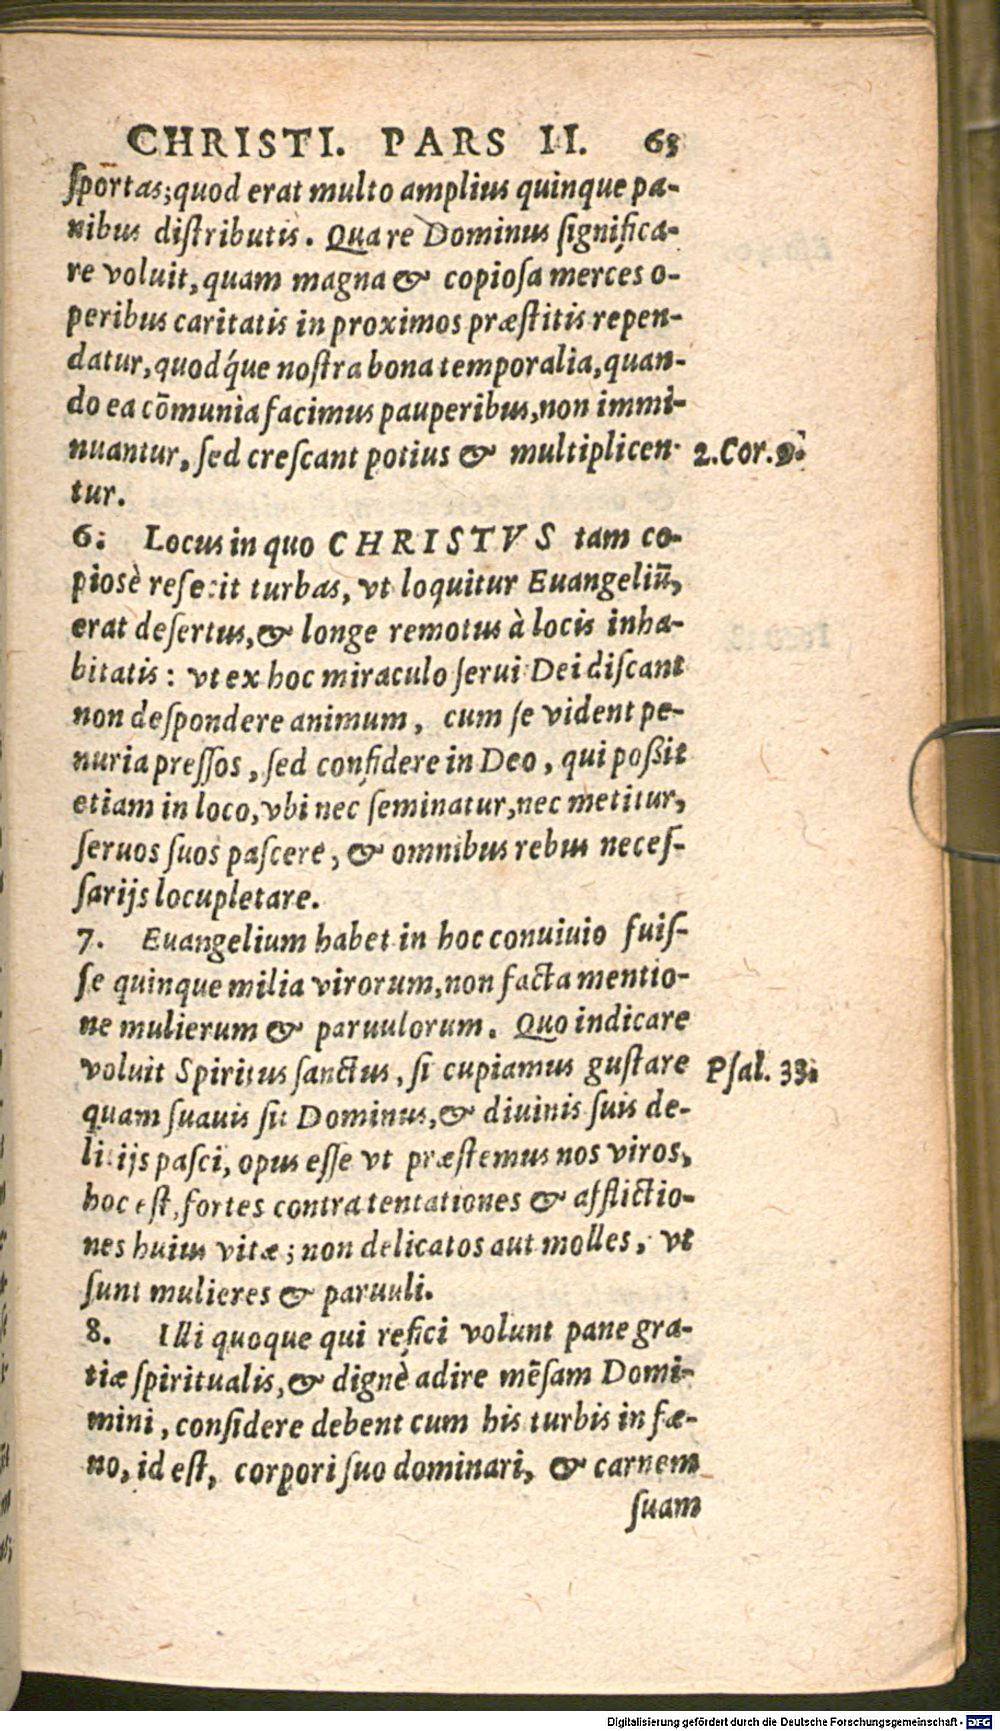 CHRISTI. PARS II. 63
ſportas; quod erat multo amplius quinque pa-
nibus diſtributis. Quare Dominus ſignifica-
re voluit, quam magna & copioſa merces o-
peribus caritatis in proximos præſtitis repen-
datur, quod q́ue noſtra bona temporalia, quan-
do ea cōmunia facimus pauperibus, non immi-
nuantur, ſed creſcant potius & multiplicen-
2. Cor. 9.
tur.
6. Locus in quo CHRISTVS tam co-
piosè refecit turbas, vt loquitur Euangeliũ,
erat deſertus, & longe remotus à locis inha-
bitatis: vt ex hoc miraculo ſerui Dei diſcant
non deſpondere animum, cum ſe vident pe-
nuria preſſos, ſed confidere in Deo, qui poßit
etiam in loco, vbi nec ſeminatur, nec metitur,
ſeruos ſuos paſcere, & omnibus rebus neceſ-
ſarijs locupletare.
7. Euangelium habet in hoc conuiuio fuiſ-
ſe quinque milia virorum, non facta mentio-
ne mulierum & paruulorum. Quo indicare
voluit Spiritus ſanctus, ſi cupiamus guſtare
Pſal. 33.
quam ſuauis ſit Dominus, & diuinis ſuis de-
litijs paſci, opus eſſe vt præſtemus nos viros,
hoc eſt, fortes contra tentationes & afflictio-
nes huius vitæ; non delicatos aut molles, vt
ſunt mulieres & paruuli.
8. Illi quoque qui refici volunt pane gra-
tiæ ſpiritualis, & dignè adire mēſam Domi-
mini, conſidere debent cum his turbis in fæ-
no, id eſt, corpori ſuo dominari, & carnem
ſuam
Digitalisierung gefördert durch die Deutsche Forschungsgemeinschaft - DFG